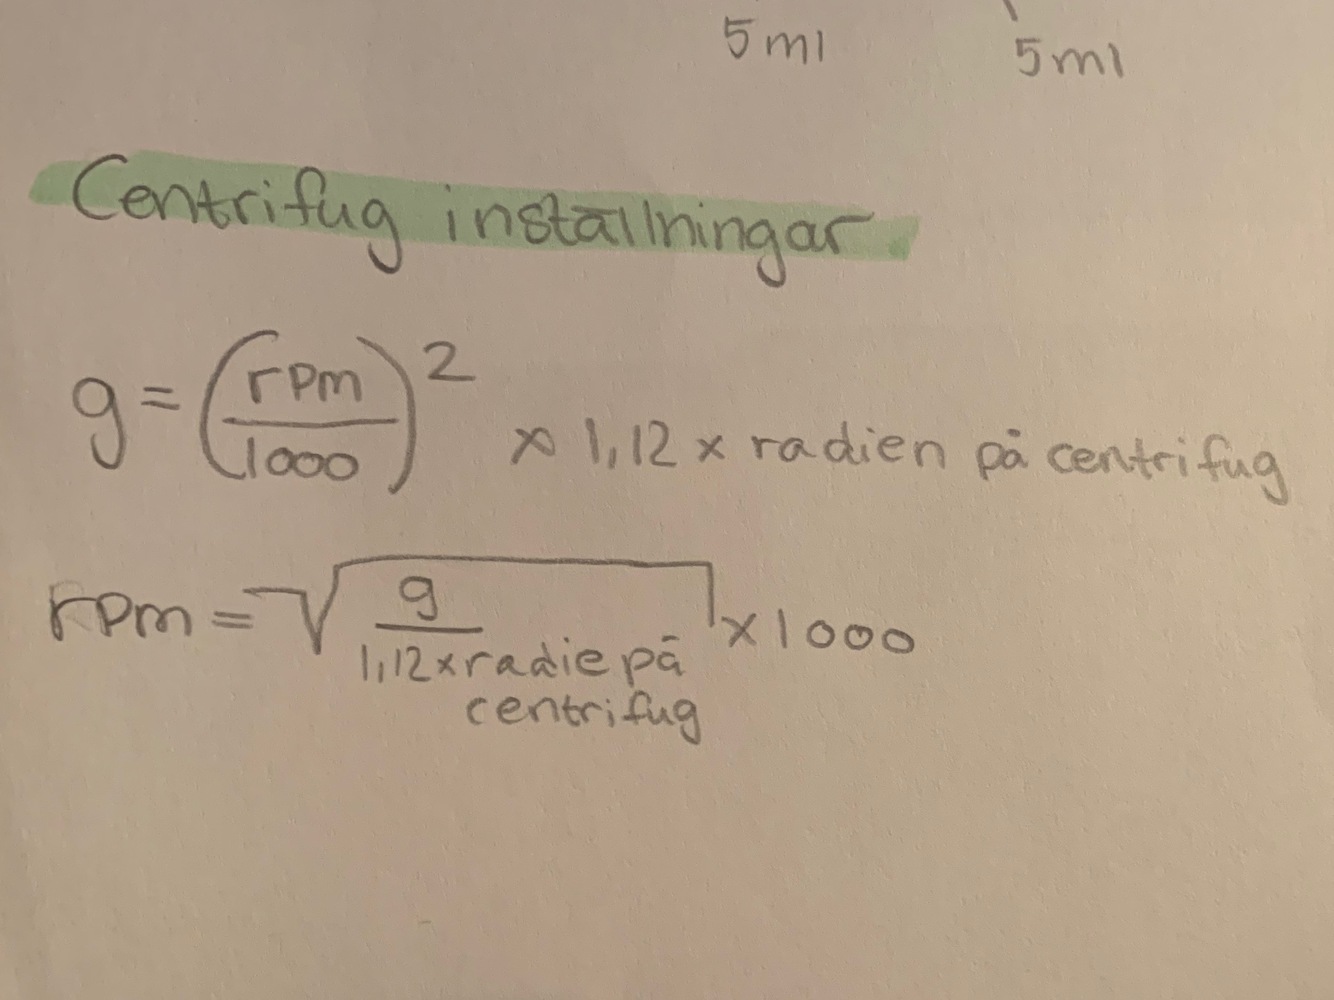 5ml 5ml
Centrifug inställningar
g = (rpm/1000)² × 1,12 × radien på centrifug
rpm = √(g/1,12 × radie på centrifug) × 1000